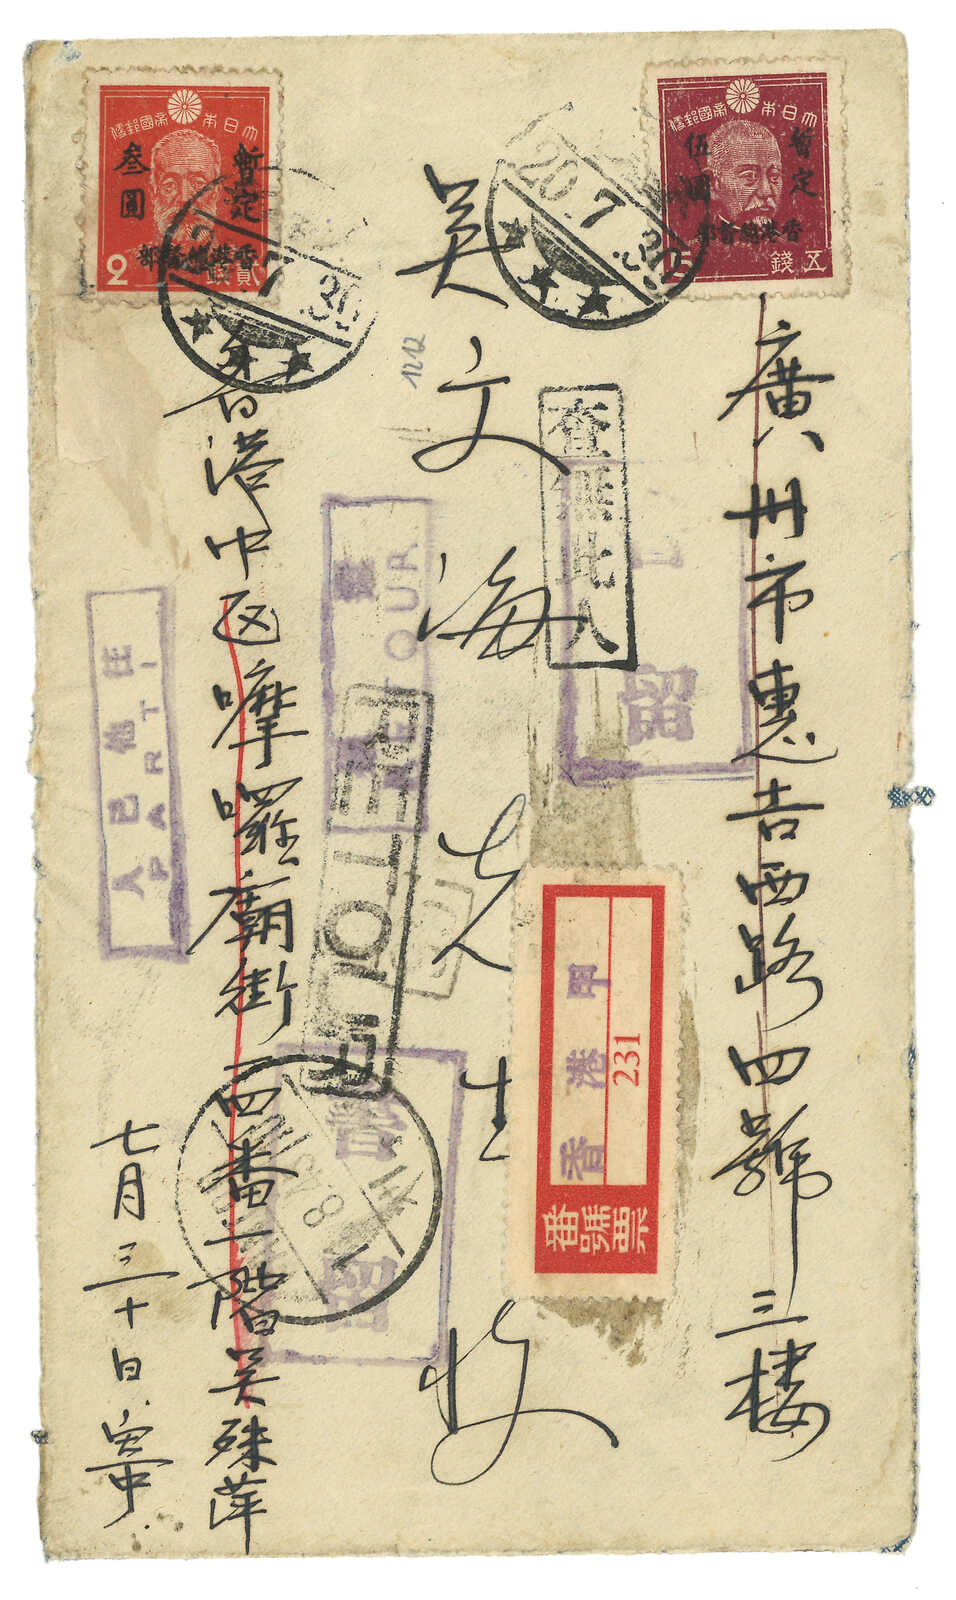 廣州市惠吉西路四號三樓
吳文海先生收
香港中区嚤囉廟街西番二階吳殊萍
七月三十日寄
大日本帝國郵便
暫定
伍圓
香港總督部
五錢
5
大日本帝國郵便
暫定
叁圓
香港總督部
貳錢
2
20.7.30
7.30
1212
查無此人
人已他往
PARTI
RETOUR
留
香港 甲
231
番號票